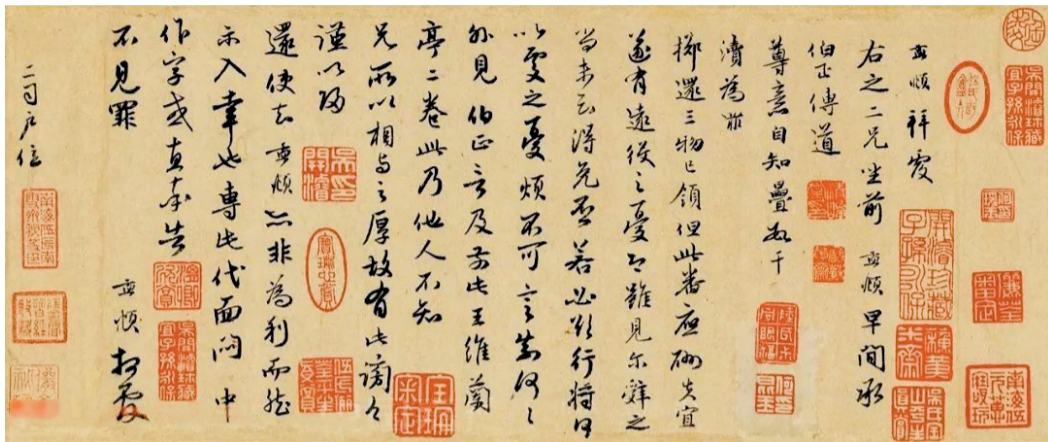 孟頫拜覆
右之二兄坐前 孟頫早間承
伯正傳道
尊意自知疊數干
瀆為罪
擲還三物已領但此番應酬失宜
遂有遠役之憂即雖見尔辭之
尚未知得免否若必欲行將何
以處之憂煩不可言奈何々
外見 伯正言及前此王維蘭
亭二卷此乃他人不知
兄所以相与之厚故有此謗今
謹以歸
還使去孟頫亦非為利而然
示入幸也專此代面悶中
作字或直率告
不見罪 孟頫拜覆
二司戶位